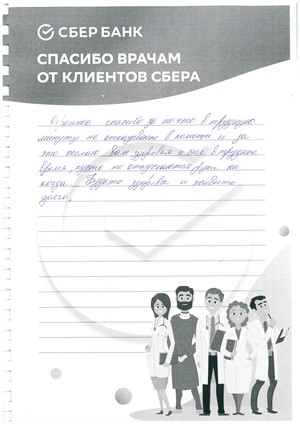 СБЕР БАНК
СПАСИБО ВРАЧАМ
ОТ КЛИЕНТОВ СБЕРА
спасибо за то что в трудную
минуту не отказываете в помощи и за
это желаю Вам здоровья и сил в трудное
время, пусть не опускаются руки ни
когда. Будьте здоровы и живите
долго.